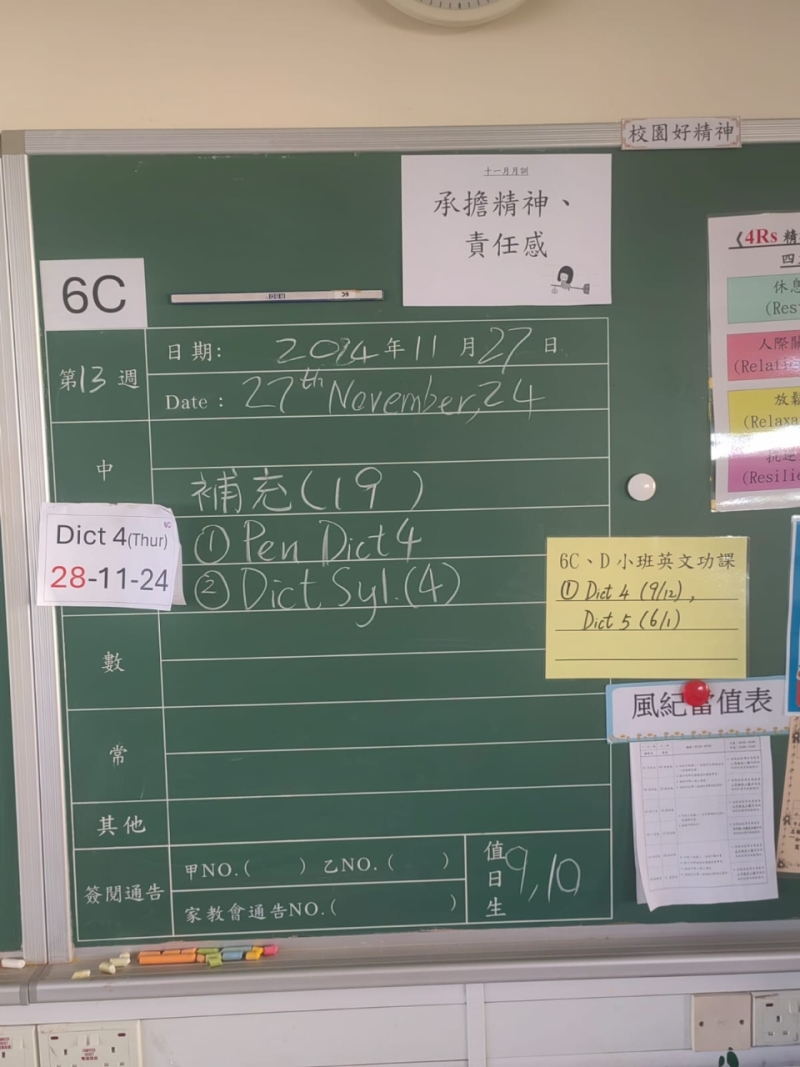 校園好精神
十一月月訓
承擔精神、
責任感
6C
《4Rs 精
四
休息
(Res
人際關
(Relati
放鬆
(Relaxa
(Resilie
第13週
日期: 2024年11月27日
Date : 27th November, 24
中
補充(19)
6C
Dict 4(Thur)
28-11-24
① Pen Dict 4
② Dict Syl.(4)
6C、D小班英文功課
① Dict 4 (9/12),
Dict 5 (6/1)
數
風紀當值表
常
其他
簽閱通告
甲NO.( ) 乙NO.( )
家教會通告NO.( )
值日生
9,10